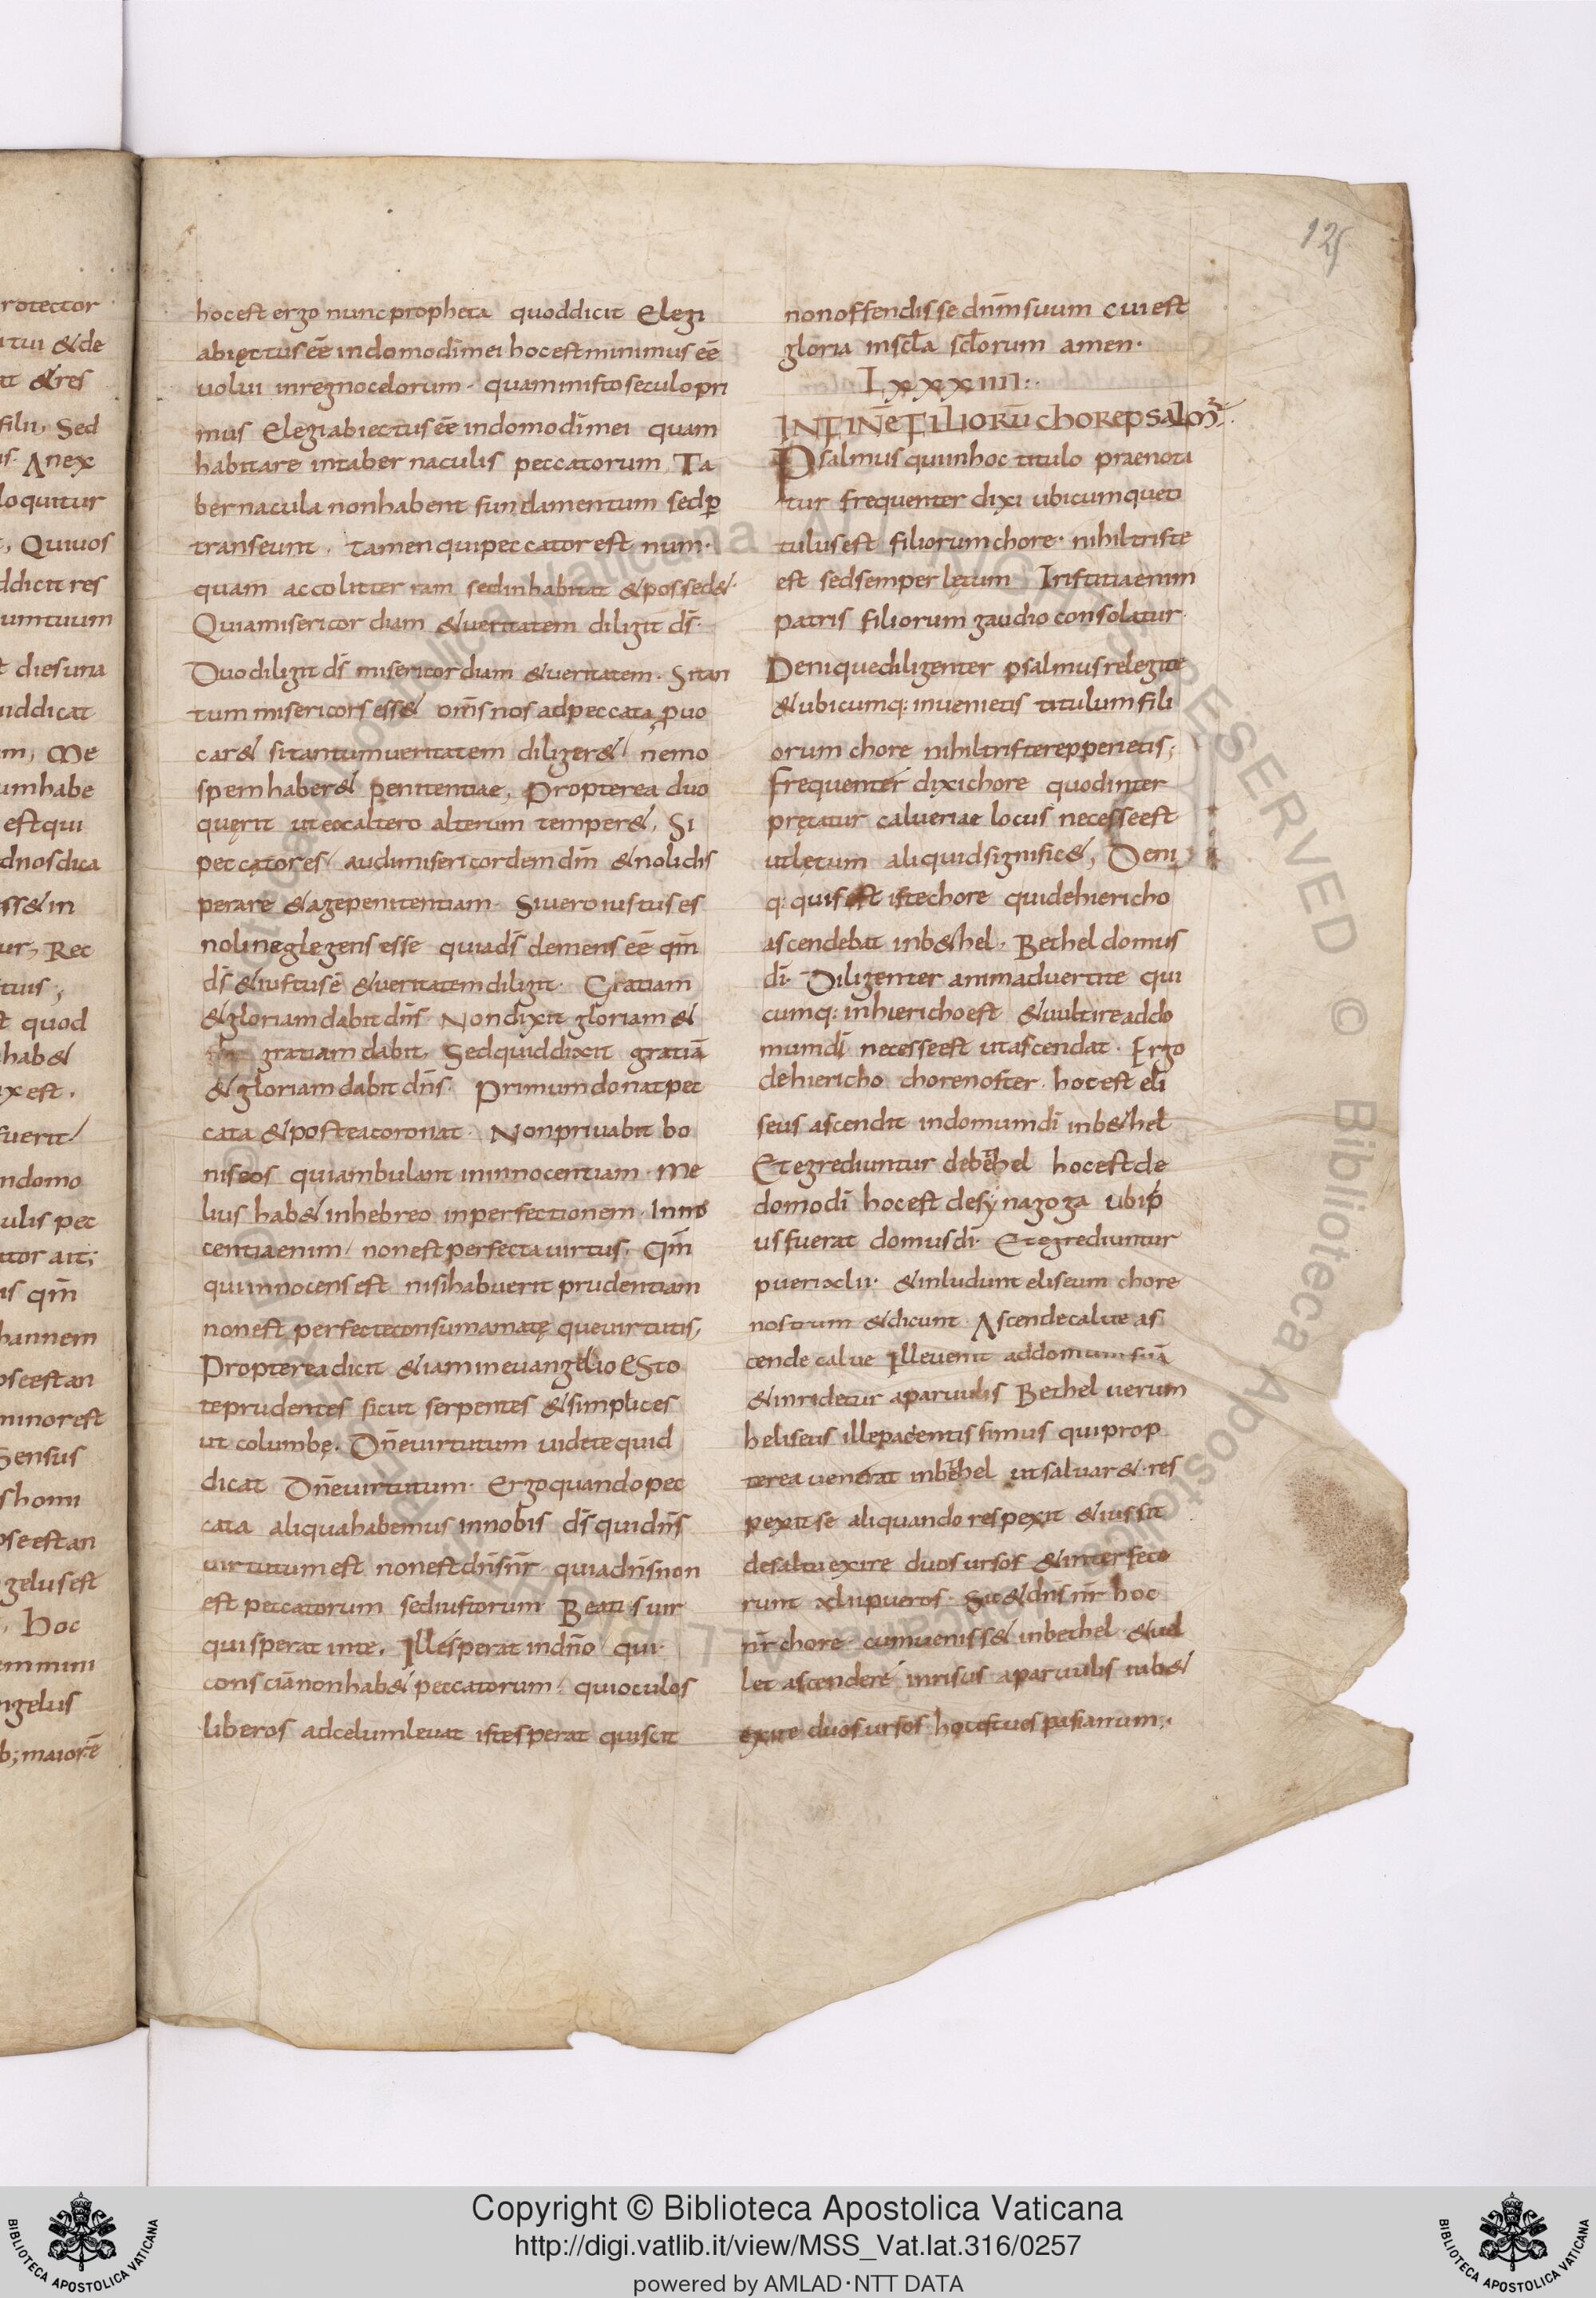 rotector
tui &de
at &res
filii, Sed
Anex
loquitur
Quiuos
ddicit res
umtuum
diesuna
uiddicat
m, Me
umhabe
estqui
dnosdica
ss&in
ur, Rec
tuis,
quod
hab&
xest.
fuerit
ndomo
ulis pec
ator ait;
is qm̄
hannem
osceestan
minorest
Sensus
shomi
oseestan
gelusest
hoc
emmini
ngelus
b; maiorē
125
hocest ergo nuncpropheta quoddicit Elegi
abięctus ēē indomodīmei hocestminimus ēē
uolui inregnocelorum. quaministoseculopri
mus Elegiabiectus ēē indomodīmei quam
habitare intabernaculis peccatorum, Ta
bernacula nonhabent fundamentum sedp̄
transeunt, Tamenquipeccatorest num·
quam accolitterram sedinhabitat &possed&·
Quiamisericordiam &ueritatem diligit dś·
Duodiligit dś misericordiam &ueritatem. Sitan
tummisericors ess& om̄s nos adpeccata puo
car& sitantumueritatem diliger& nemo
spemhaber& penitentiae, Propterea duo
quęrit utexaltero alterum temper&, Si
peccatores audimisericordemdm̄ &nolidis
perare &agepenitentiam. Siuero iustus es
nolineglegens esse quiadś demens ēē qm̄
dś &iustus ē &ueritatemdiligit. Gratiam
&gloriamdabit dn̄s Nondixit gloriam &
gratiamdabit, Sedquiddixit gratiā
&gloriamdabit dn̄s. Primumdonatpec
cata &posteacoronat. Nonpriuabit bo
niseos quiambulant ininnocentiam. Me
lius hab& inhebreo inperfectionem. Inno
centiaenim nonestperfectauirtus. Qm̄
quiinnocensest nisihabuerit prudentiam
nonest perfecteconsumamatę queuirtutis,
Proptereadicit &iaminevangelio ESto
teprudentes sicut serpentes &simplices
ut columbę. Dn̄euirtutum uidetequid
dicat Dn̄euirtutum. Ergoquandopec
cata aliquahabemus innobis dś quidn̄s
uirtutumest nonestdn̄sn̄r quiadn̄snon
est peccatorum sediustorum Beatus uir
quisperat inte. Illesperat indn̄o qui·
consciānonhab& peccatorum. quioculos
liberos adcelumleuat istesperat quiscit
nonoffendisse dn̄msuum cuiest
gloria inscl̄a scl̄orum amen·
Lxxxiiii:·
INFINĒFILIORŪ chorepsalm̄
Psalmus quiinhoc titulo praenota
tur frequenter dixi ubicumqueti
tulusest filiorumchore. nihiltriste
est sedsemper lętum Iristitiaenim
patris filiorum gaudio consolatur.
Deniquediligenter psalmusrelegite
&ubicumq: inuenietis titulumfili
orum chore nihiltristerepperietis;
frequenter dixichore quodinter
prętatur caluariae locus necesseest
utlętum aliquidsignific&, Deni
q: quis est istechore quidehiericho
ascendebat inb&hel. Bethel domus
dī. Diligenter animaduertite qui
cumq: inhierichoest &uultireaddo
mumdī necesseest utascendat. Ergo
dehiericho chorenoster. hocest eli
seus ascendit indomumdī inb&hel
Et egrediuntur debethel hocestde
domodī hocest desynagoga ubip
usfuerat domusdī. Et egrediuntur
puerixlii· &inludunt eliseum chore
nostrum &dicunt Ascendecalue as
cende calue Illeuenit addomumsuā
&inridetur aparuulis Bethel uerum
heliseus illepacientissimus quiprop
tereauenerat inbethel utsaluar&. res
pexitse aliquando respexit &iussit
desaltuexire duosursos &interfece
runt xliipueros. Sic&dn̄s n̄r hoc
n̄r chore. cumueniss& inbethel &uel
let ascendere inrisus aparuulis iub&
exire duosursos hocestuespasianum:·
Copyright © Biblioteca Apostolica Vaticana
http://digi.vatlib.it/view/MSS_Vat.lat.316/0257
powered by AMLAD·NTT DATA
BIBLIOTECA APOSTOLICA VATICANA
BIBLIOTECA APOSTOLICA VATICANA